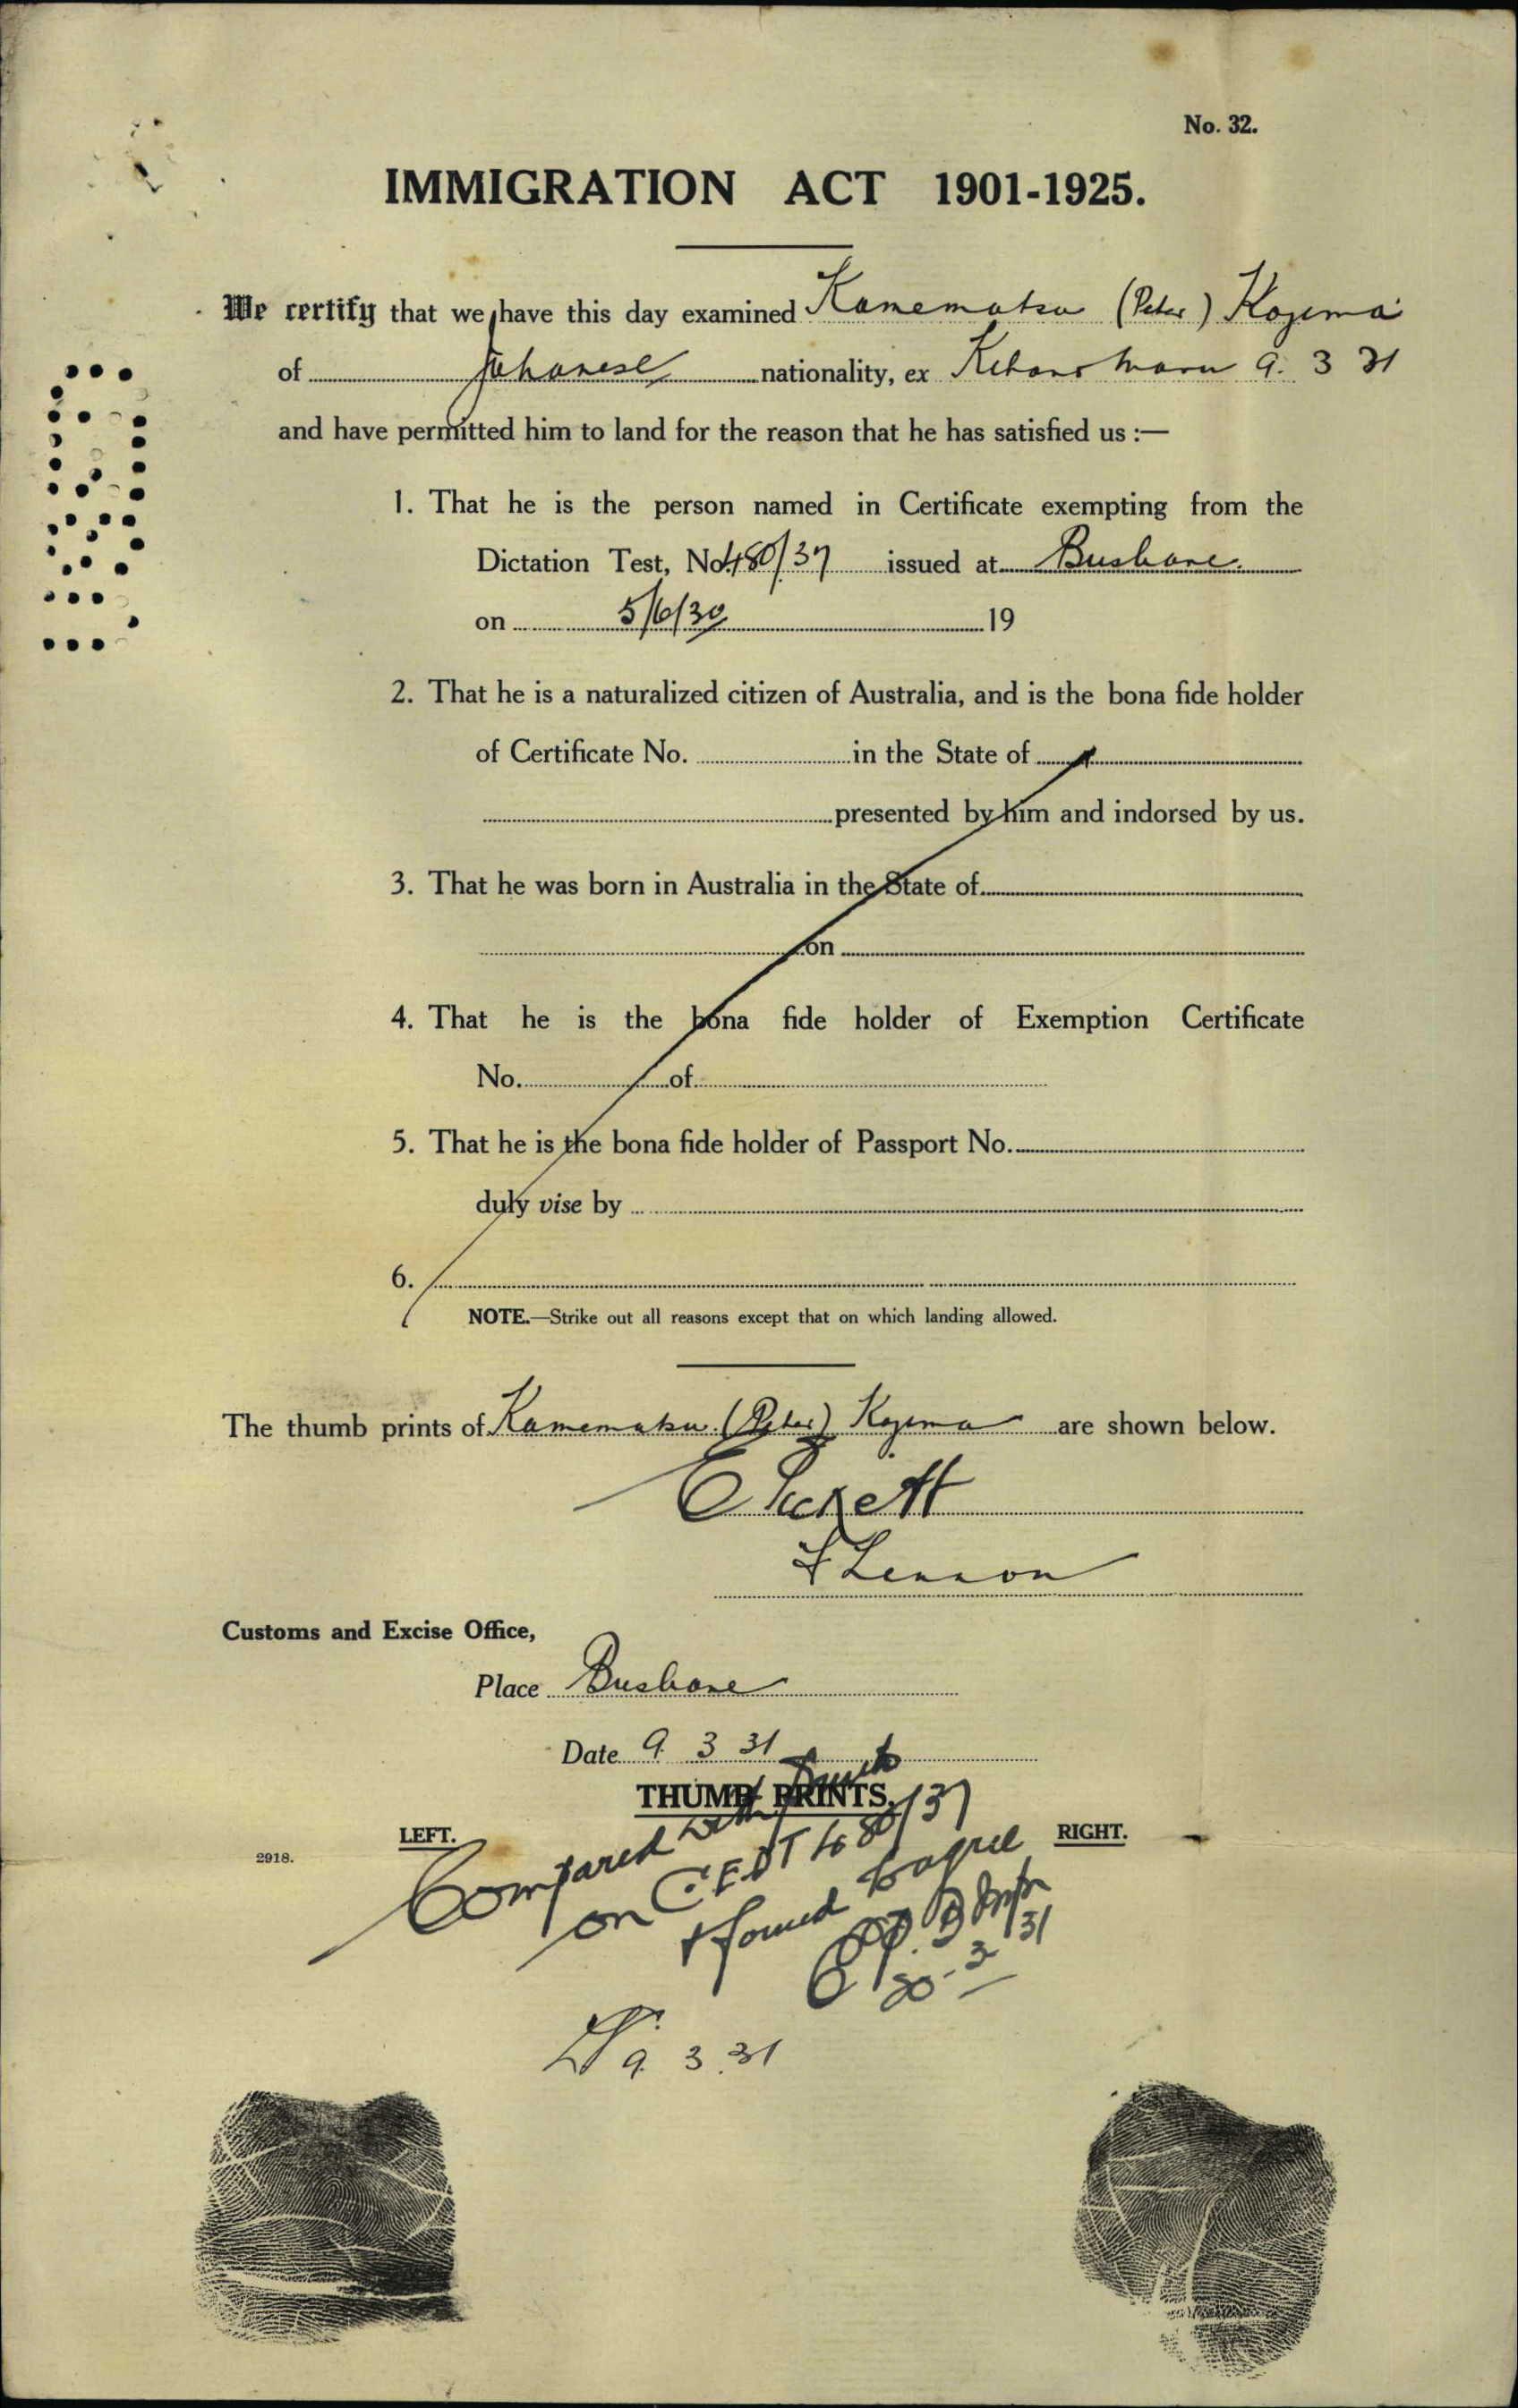 No. 32.
IMMIGRATION ACT 1901-1925.
We certify that we have this day examined Kanematsu (Peter) Kozema
of Japanese nationality, ex Kitano Maru 9. 3 31
and have permitted him to land for the reason that he has satisfied us :—
1. That he is the person named in Certificate exempting from the
Dictation Test, No 480/37 issued at Brisbane.
on 5/6/30 19
2. That he is a naturalized citizen of Australia, and is the bona fide holder
of Certificate No. in the State of
presented by him and indorsed by us.
3. That he was born in Australia in the State of
on
4. That he is the bona fide holder of Exemption Certificate
No. of
5. That he is the bona fide holder of Passport No.
duly vise by
6.
NOTE.—Strike out all reasons except that on which landing allowed.
The thumb prints of Kanematsu (Peter) Kozema are shown below.
E Pickett
F Lennon
Customs and Excise Office,
Place Brisbane
Date 9 3 31
THUMB PRINTS.
LEFT. RIGHT.
2918.
Compared with prints
on CEDT 480/37
& found to agree
20-3 31
9. 3. 31